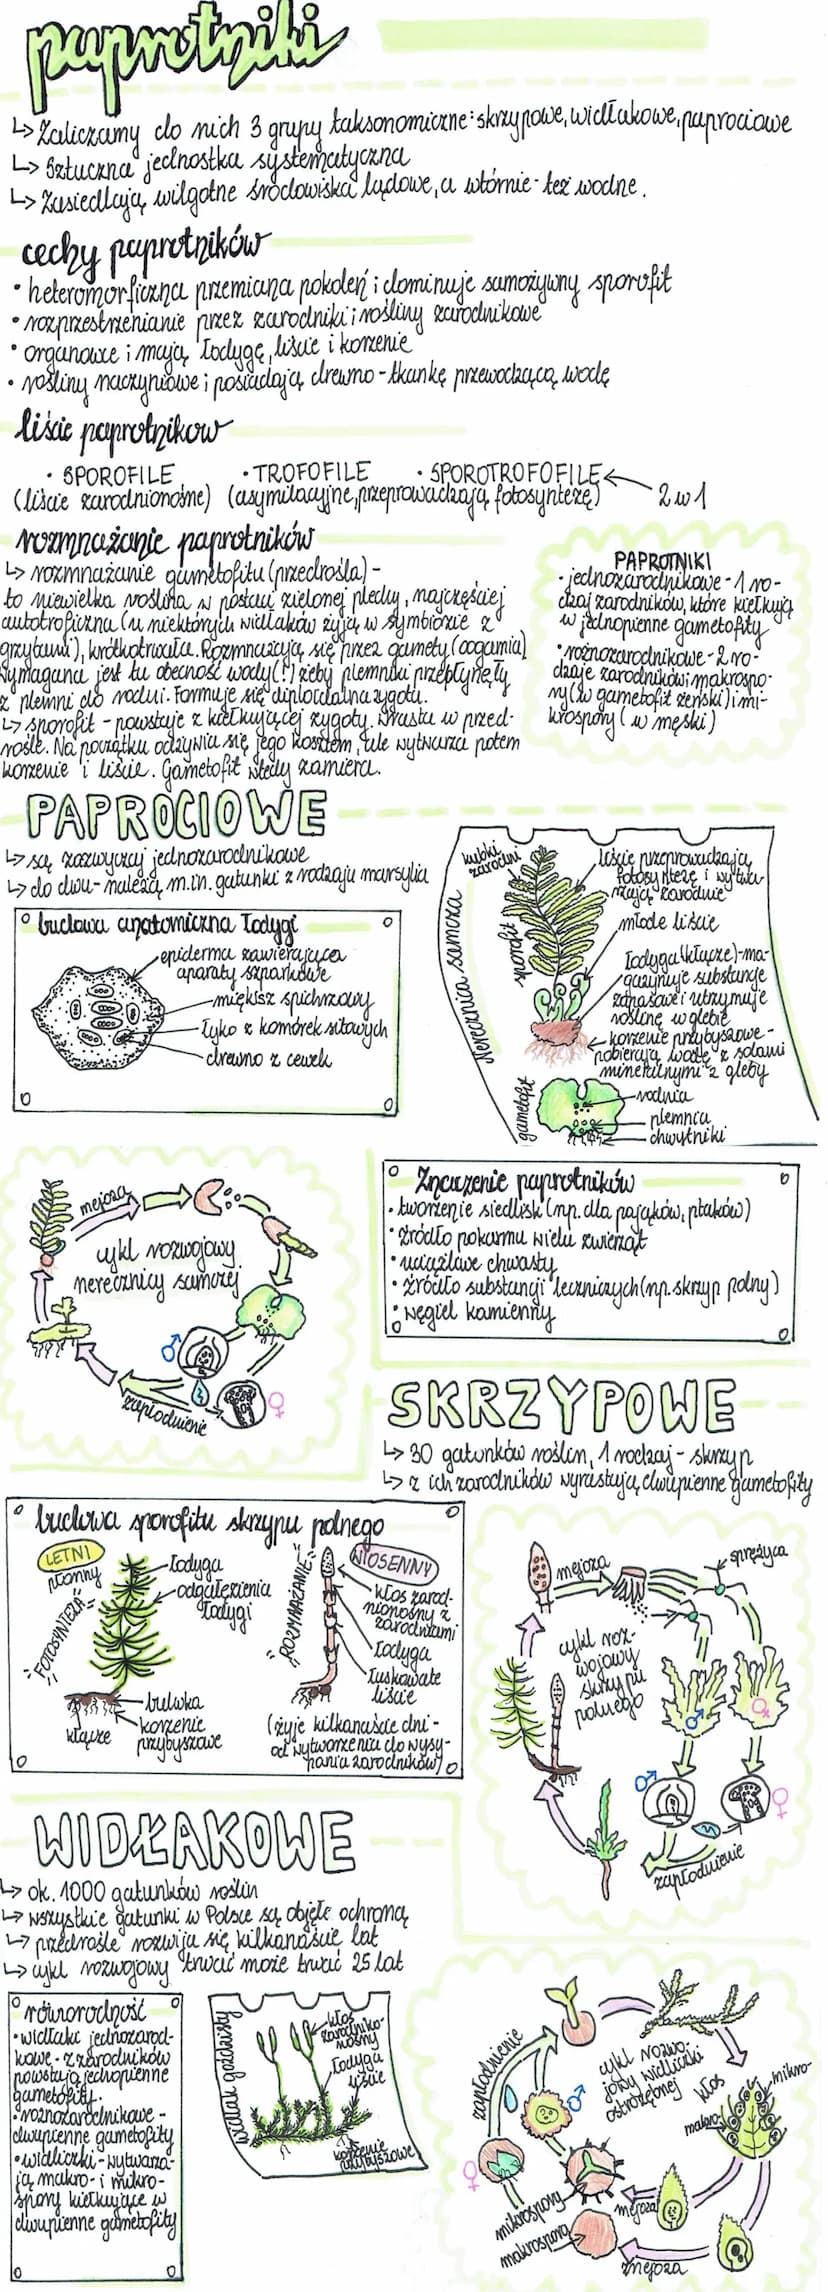 paprotniki
↳ Zaliczamy do nich 3 grupy taksonomiczne: skrzypowe, widłakowe, paprociowe
↳ Sztuczna jednostka systematyczna
↳ Zasiedlają wilgotne środowiska lądowe, a wtórnie - też wodne.
cechy paprotników
• heteromorficzna przemiana pokoleń i dominuje samożywny sporofit
• rozprzestrzenianie przez zarodniki; rośliny zarodnikowe
• organowe i mają łodygę, liście i korzenie
• rośliny naczyniowe; posiadają drewno - tkankę przewodzącą wodę
liście paprotnikow
• SPOROFILE • TROFOFILE • SPOROTROFOFILE
(liście zarodnionośne) (asymilacyjne, przeprowadzają fotosyntezę) 2 w 1
rozmnażanie paprotników
↳ rozmnażanie gametofitu (przedrośla) -
to niewielka roślina w postaci zielonej plechy, najczęściej
autotroficzna (u niektórych widłaków żyją w symbiozie z
grzybami), krótkotrwała. Rozmnażają się przez gamety (oogamia)
Wymagana jest tu obecność wody(!) żeby plemniki przepłynęły
z plemni do rodni. Formuje się diploidalna zygota.
↳ sporofit - powstaje z kiełkującej zygoty. Wrasta w przed-
rośle. Na początku odżywia się jego kosztem, ale wytwarza potem
korzenie i liście. Gametofit wtedy zamiera.
PAPROTNIKI
• jednozarodnikowe - 1 ro-
dzaj zarodników, które kiełkują
w jednopienne gametofity
• różnozarodnikowe - 2 ro-
dzaje zarodników; makrospo-
ry (w gametofit żeński) i mi-
krospory (w męski)
PAPROCIOWE
↳ są zazwyczaj jednozarodnikowe
↳ do dwu- należą m.in. gatunki z rodzaju marsylia
budowa anatomiczna łodygi
epiderma zawierająca
aparaty szparkowe
miękisz spichrzowy
łyko z komórek sitowych
drewno z cewek
Nerecznica samcza
kubki
zarodni
sporofit
liście przeprowadzają
fotosyntezę i wytwa-
rzają zarodnie
młode liście
łodyga (kłącze) - ma-
gazynuje substancje
zapasowe i utrzymuje
roślinę w glebie
korzenie przybyszowe -
pobierają wodę z solami
mineralnymi z gleby
gametofit
rodnia
plemnia
chwytniki
mejoza
cykl rozwojowy
nerecznicy samczej
♂
♀
zapłodnienie
Znaczenie paprotników
• tworzenie siedlisk (np. dla pająków, ptaków)
• źródło pokarmu wielu zwierząt
• uciążliwe chwasty
• źródło substancji leczniczych (np. skrzyp polny)
• węgiel kamienny
SKRZYPOWE
↳ 30 gatunków roślin, 1 rodzaj - skrzyp
↳ z ich zarodników wyrastują dwupienne gametofity
budowa sporofitu skrzypu polnego
LETNI
płonny
"FOTOSYNTEZA"
łodyga
odgałęzienia
łodygi
bulwka
korzenie
przybyszowe
kłącze
"ROZMNAŻANIE"
WIOSENNY
kłos zarod-
nionośny z
zarodniami
łodyga
łuskowate
liście
(żyje kilkanaście dni -
od wytworzenia do wysy-
pania zarodników)
mejoza
sprężyca
cykl roz-
wojowy
skrzypu
polnego
♂
♀
♂
♀
zapłodnienie
WIDŁAKOWE
↳ ok. 1000 gatunków roślin
↳ wszystkie gatunki w Polsce są objęte ochroną
↳ przedrośle rozwija się kilkanaście lat
↳ cykl rozwojowy trwać może trwać 25 lat
róworodność
• widłaki jednozarod-
kowe - z zarodników
powstają jednopienne
gametofity.
• różnozarodnikowe -
dwupienne gametofity
• widliczki - wytwarza-
ją makro- i mikro-
spory kiełkujące w
dwupienne gametofity
widłak goździsty
kłos
zarodniko-
nośny
łodyga
liście
korzenie
przybyszowe
zapłodnienie
cykl rozwo-
jowy widliczki
ostrzębnej
kłos
mikro-
makro-
♂
♀
mikrospory
makrospora
mejoza
mejoza